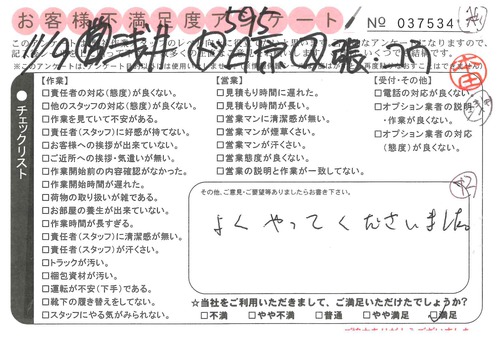 お客様不満足度アンケート
No 037534
【作業】
□責任者の対応(態度)が良くない。
□他のスタッフの対応(態度)が良くない。
□作業を見ていて不安がある。
□責任者(スタッフ)に好感が持てない。
□お客様への挨拶が出来ていない。
□ご近所への挨拶・気遣いが無い。
□作業開始前の内容確認がなかった。
□作業開始時間が遅れた。
□荷物の取り扱いが雑である。
□お部屋の養生が出来ていない。
□作業時間が長すぎる。
□責任者(スタッフ)に清潔感が無い。
□責任者(スタッフ)が汗くさい。
□トラックが汚い。
□梱包資材が汚い。
□運転が不安(下手)である。
□靴下の履き替えをしてない。
□スタッフにやる気がみられない。
【営業】
□見積もり時間に遅れた。
□見積もり時間が長い。
□営業マンに清潔感が無い。
□営業マンが煙草くさい。
□営業マンが汗くさい。
□営業態度が良くない。
□営業の説明と作業が一致してない。
【受付・その他】
□電話の対応が良くない。
□オプション業者の説明
・作業が良くない。
□オプション業者の対応
(態度)が良くない。
チェックリスト
その他、ご意見・ご要望等ありましたらお書き下さい。
よくやってくださいました
☆当社をご利用いただきまして、ご満足いただけたでしょうか?
□不満 □やや不満 □普通 □やや満足 ☑満足